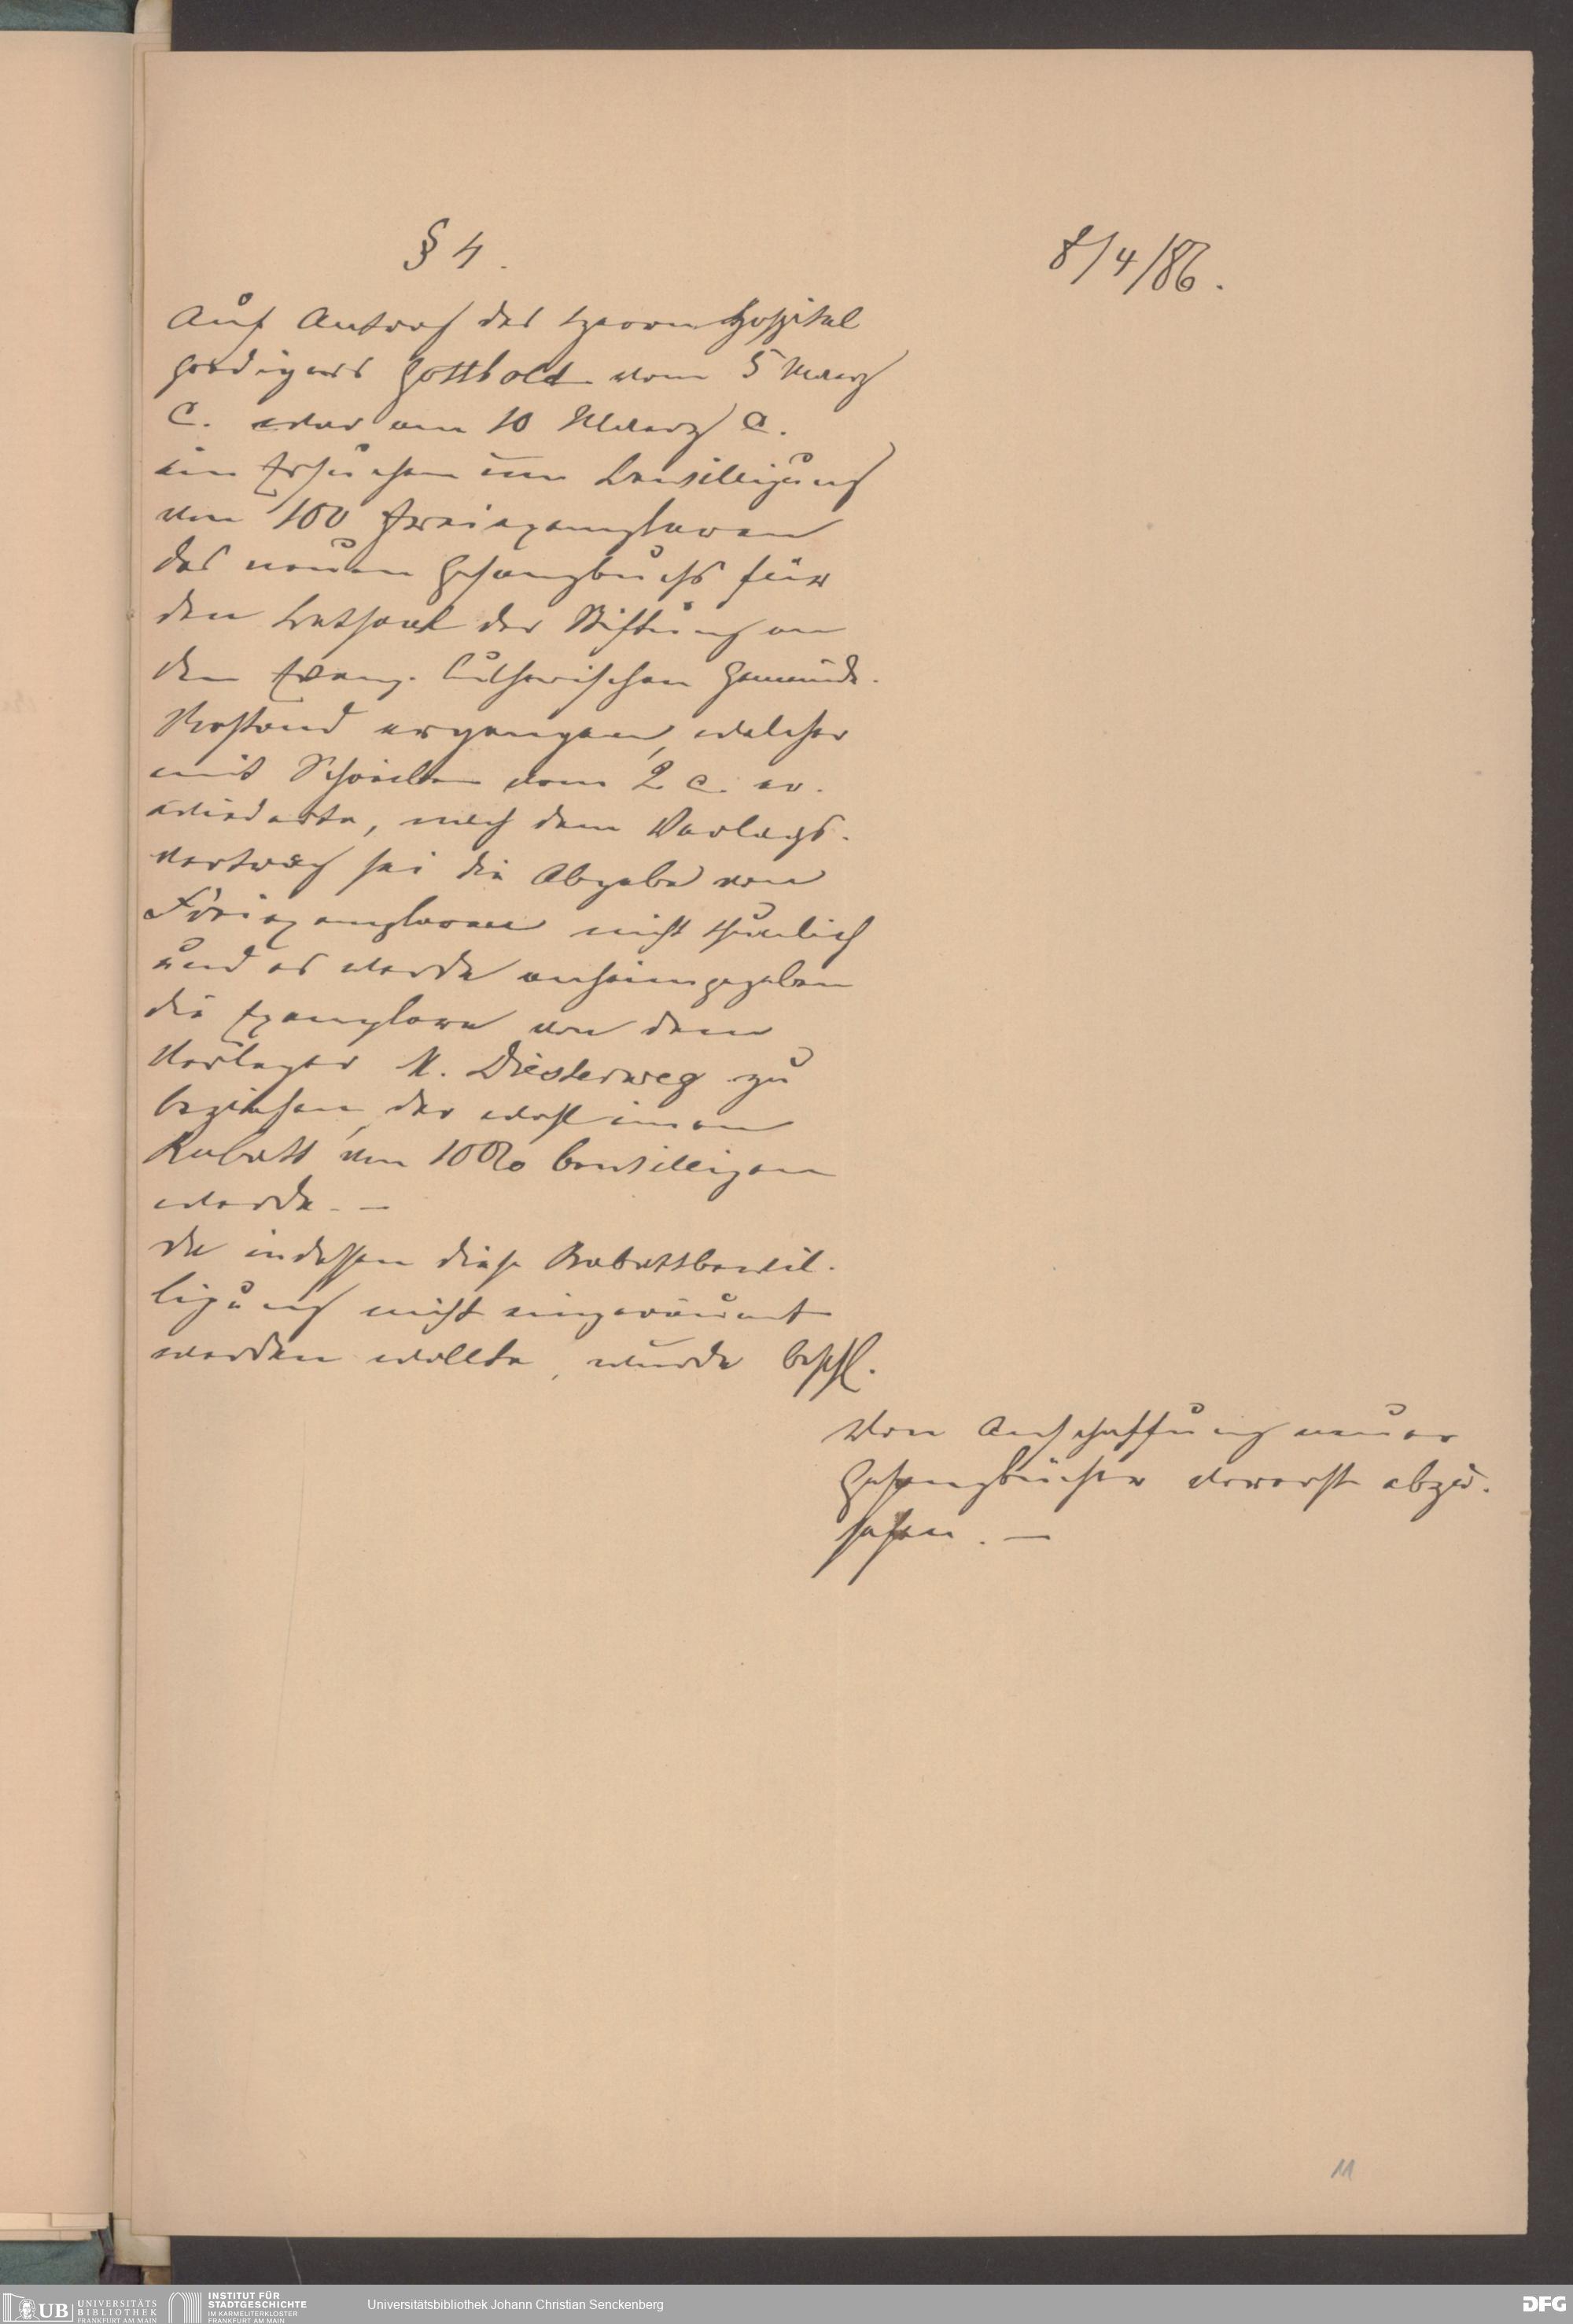 § 4.
8/4/86.
Auf Antrag des Herrn Hospital
predigers Gottbold vom 5 Maerz
C. war am 10 Maerz C.
ein Ersuchen um Bewilligung
von 100 Freiexemplaren
des neuen Gesangbuchs für
den Betsaal der Stiftung an
den Evang. Lutherischen Gemeinde-
Vorstand ergangen, welcher
mit Schreiben vom 2 c. er-
wiederte, nach dem Verlags-
vertrag sei die Abgabe von
Freiexemplaren nicht thunlich
und es werde anheimgegeben
die Exemplare von dem
Verleger M. Diesterweg zu
beziehen, der wohl einen
Rabatt von 10% bewilligen
werde. –
Da indessen diese Rabattbewil-
ligung nicht eingeräumt
werden wollte, wurde beschl.
Von Anschaffung neuer
Gesangbücher vorerst abzu-
sehen. –
11
UB UNIVERSITÄTS
BIBLIOTHEK
FRANKFURT AM MAIN
INSTITUT FÜR
STADTGESCHICHTE
IM KARMELITERKLOSTER
FRANKFURT AM MAIN
Universitätsbibliothek Johann Christian Senckenberg
DFG